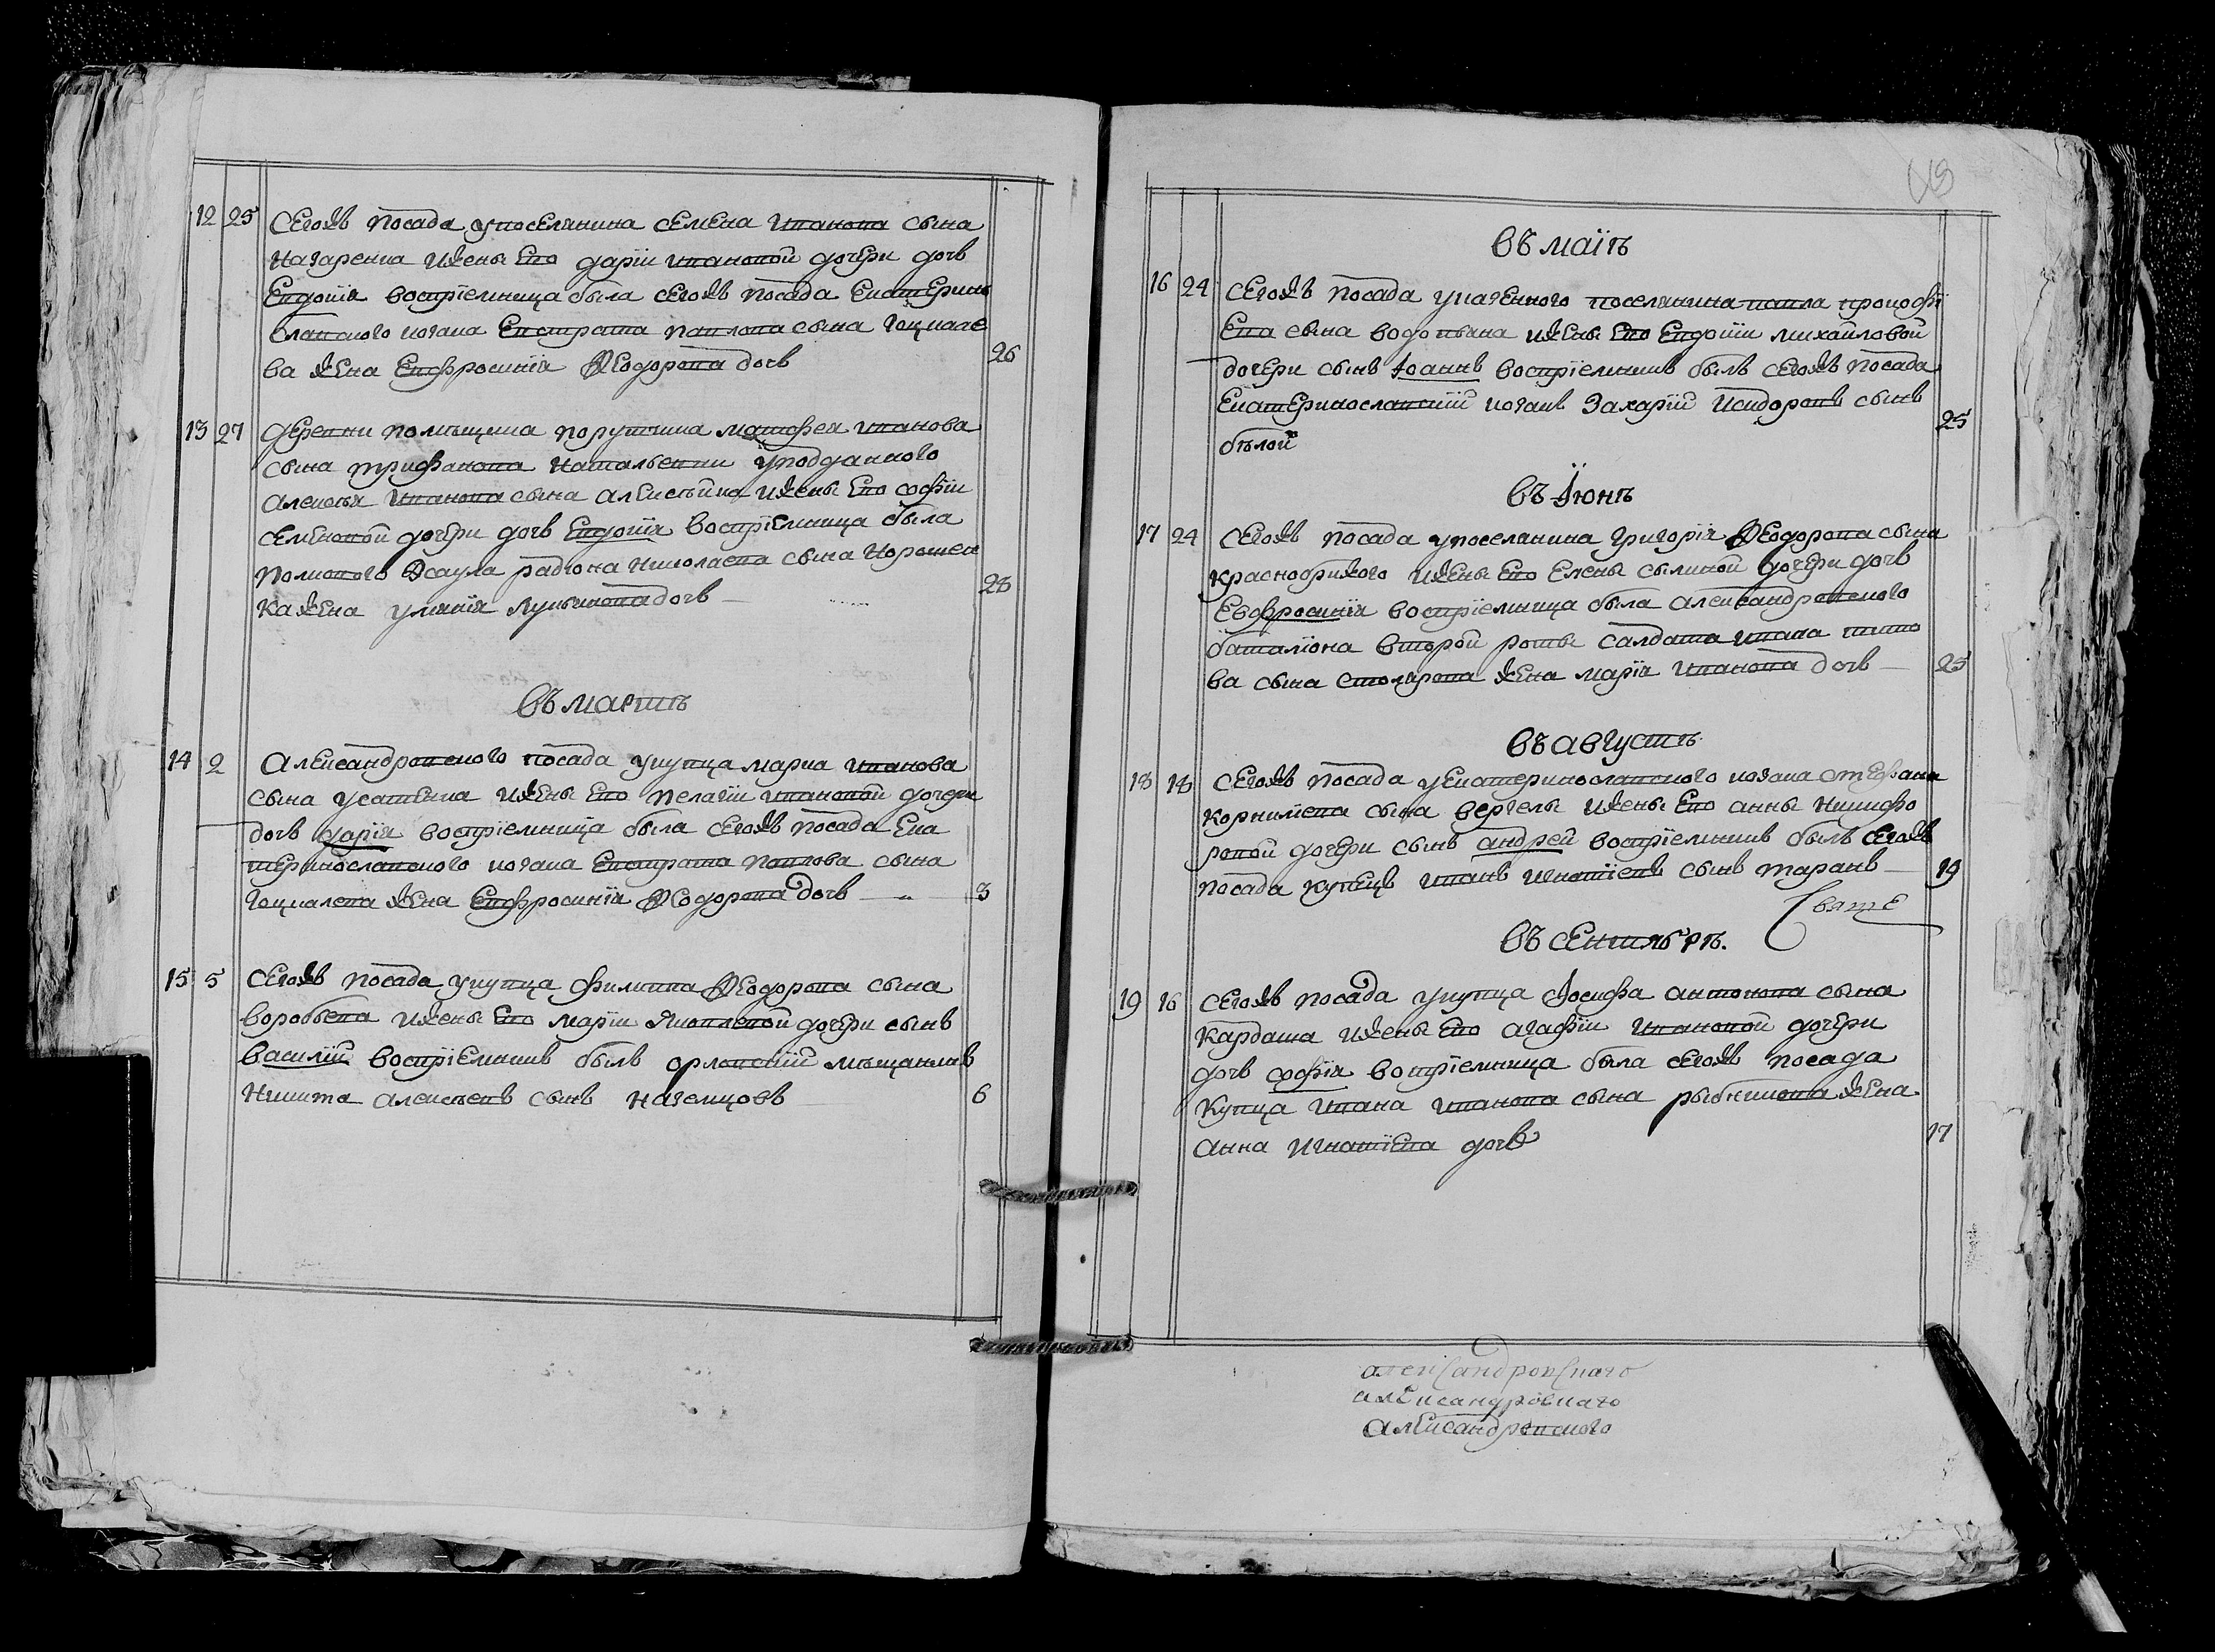 12 25 Сегожъ посада упоселянина семена иванова сына
Назаренка ижены Его дарїи ивановой дочери дочь
Евдокїя воспрїемница была сегожъ посада Екатерино
славского козака Евстрата павлова сына
ва жена Евфросинїя Феодорова дочь 26
13 27 Деревни помѣщика порутчика матфея иванова
сына трифанова Натальевки уподданного
алексѣя иванова сына алексѣйка ижены Его софїи
семеновой дочери дочь Евдокїя воспрїемница была
полкового Эсаула радїона Николаева сына Корошен
ка жена улиянїя лукьянова дочь 28
въ мартѣ
14 2 Александровского посада укупца марка иванова
сына усатенка ижены Его пелагїи ивановой дочери
дочь дарїя воспрїемница была сегожъ посада Ека
теринославского козака Евстрата павлова сына
жена Евфросинїя Феодорова дочь 3
15 5 Сегожъ посада укупца филиппа Феодорова сына
воробьева ижены Его марїи яковлевой дочери сынъ
василїй воспрїемникъ былъ орловскїй мѣщанинъ
Никита алексѣевъ сынъ 6
въ маїѣ
16 24 Сегожъ посада указенного поселянина павла прокофї
Ева сына водопьяна ижены Его Евдокїи михайловой
дочери сынъ Іоаннъ воспрїемникъ былъ сегожъ посада
Екатеринославскїй козакъ Захарїй Исидоровъ сынъ
бѣлой 25
въ Їюнѣ
17 24 Сегожъ посада упоселянина Григорїя Феодорова сына
краснобрижого ижены Его Елены силиной дочери дочь
Евфросинїя воспрїемница была александровского
баталїона второй роты салдата ивана тито
ва сына столярова жена марїя иванова дочь 25
въ августѣ
18 18 Сегожъ посада уЕкатеринославского козака стефана
корнилїева сына вергелы ижены Его анны Никифо
ровой дочери сынъ андрей воспрїемникъ былъ сегожъ
посада купецъ иванъ игнатїевъ сынъ таранъ 19
въ сентябрѣ.
19 16 Сегожъ посада укупца Іосифа антонова сына
Кардаша ижены Его агафїи ивановой дочери
дочь софїя вопрїемница была сегожъ посада
Купца ивана иванова сына рыбникова жена
анна игнатїева дочь 17
александровскаго
александровскаго
александровского